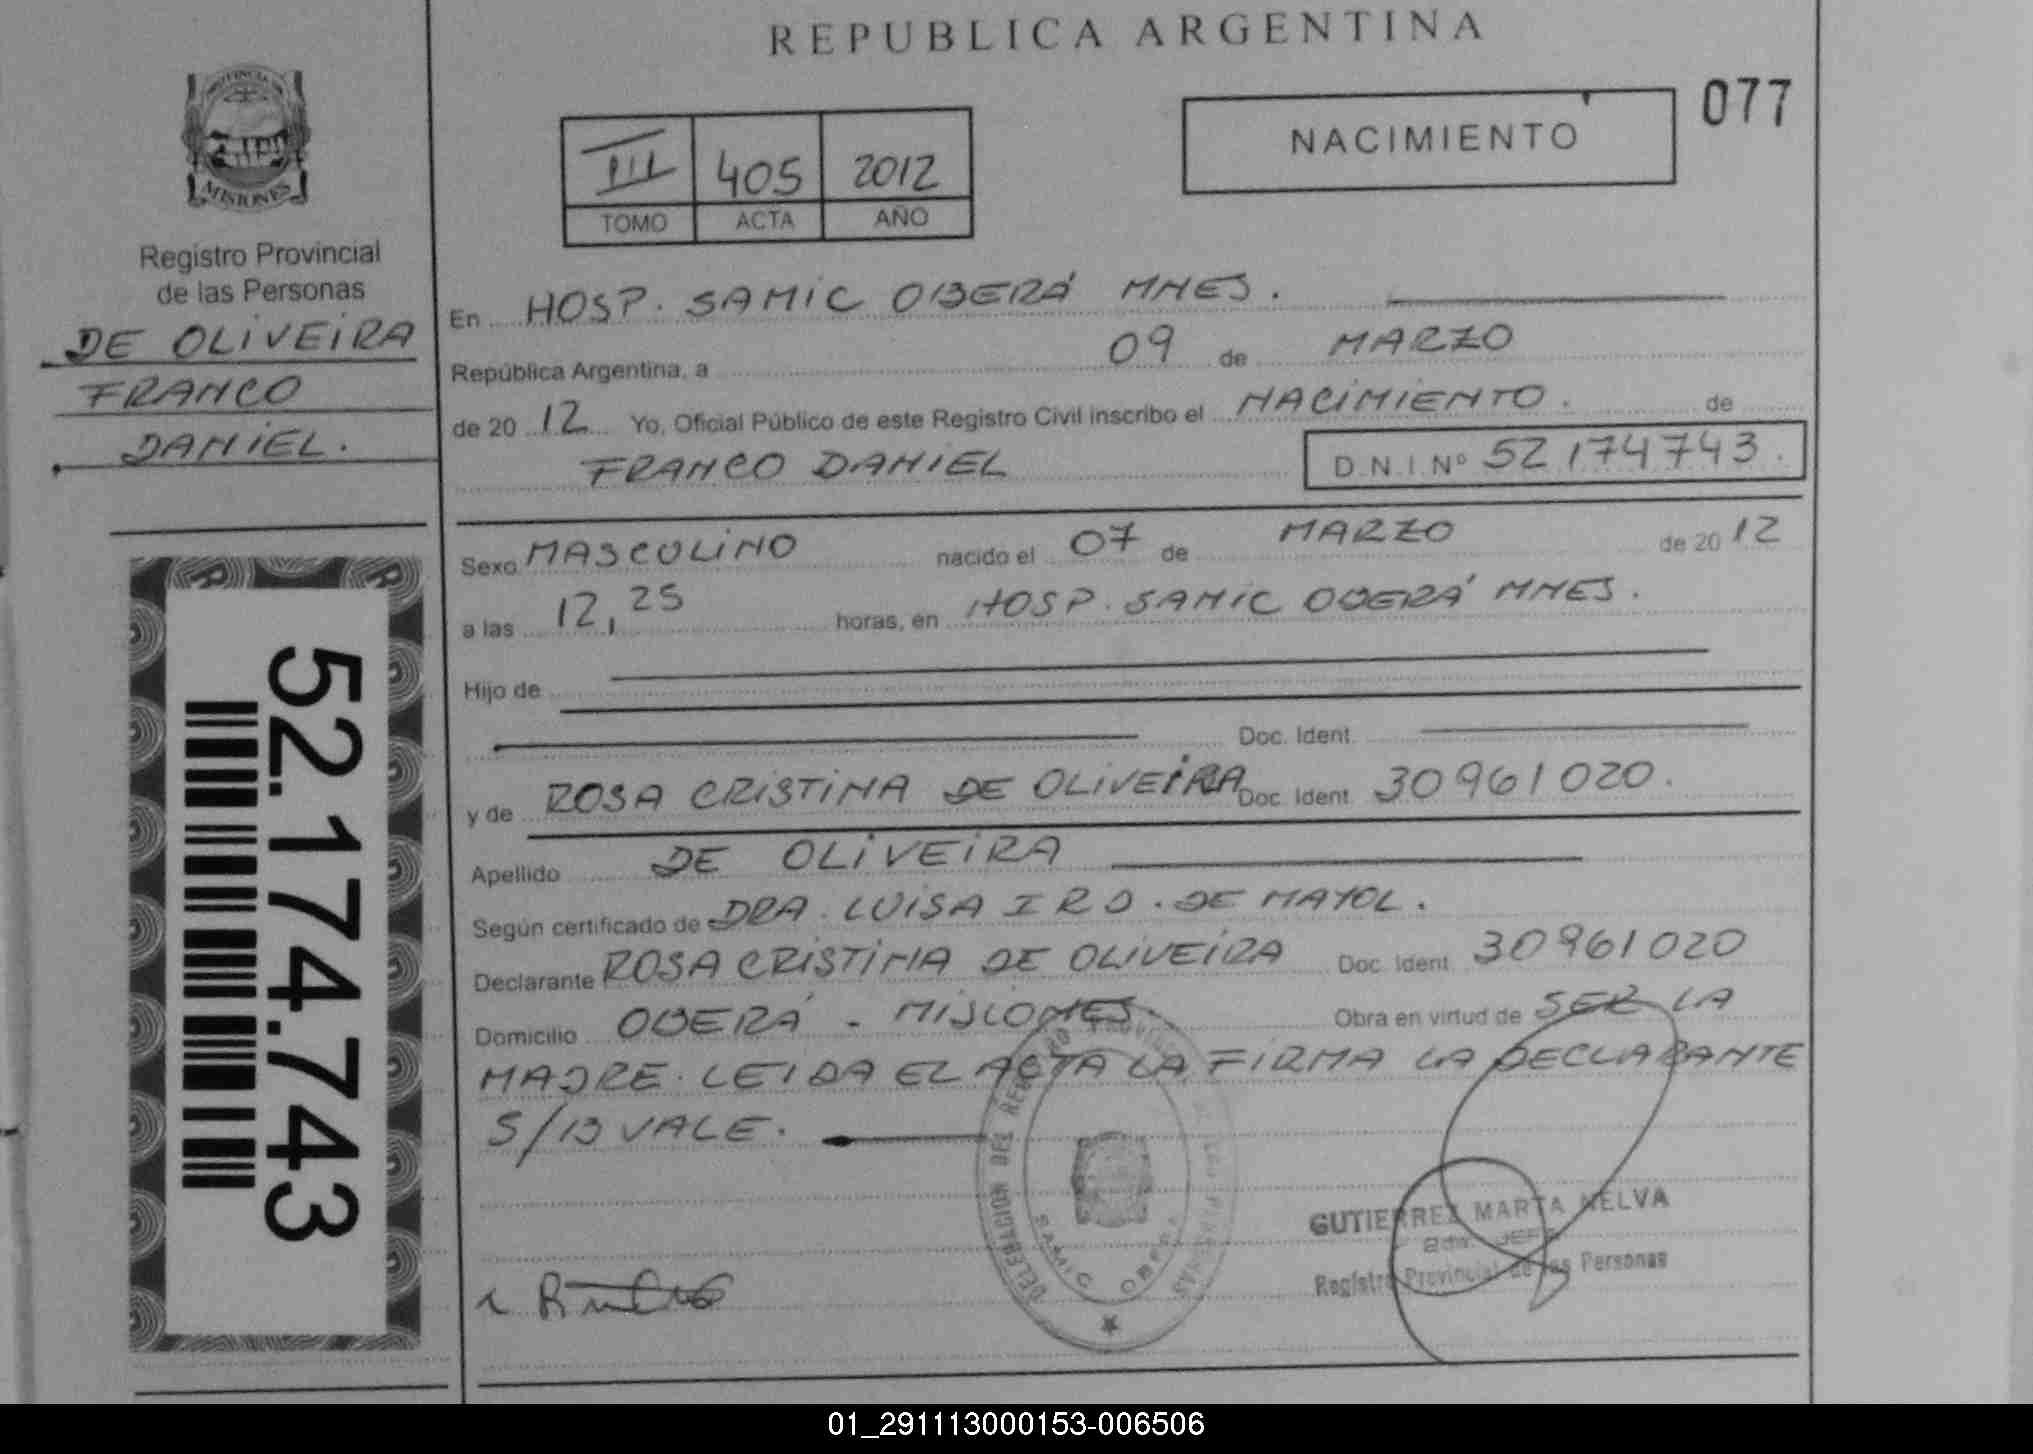 REPUBLICA ARGENTINA
077
NACIMIENTO
III 405 2012
TOMO ACTA AÑO
PROVINCIA DE
MISIONES
Registro Provincial
de las Personas
DE OLIVEIRA
FRANCO
DANIEL.
52.174.743
En HOSP. SAMIC OBERÁ MNES.
República Argentina, a 09 de MARZO
de 20 12 Yo, Oficial Público de este Registro Civil inscribo el NACIMIENTO. de
FRANCO DANIEL D.N.I. Nº 52174743.
Sexo MASCULINO nacido el 07 de MARZO de 20 12
a las 12,25 horas, en HOSP. SAMIC OBERÁ MNES.
Hijo de
Doc. Ident.
y de ROSA CRISTINA DE OLIVEIRA Doc. Ident. 30961020.
Apellido DE OLIVEIRA
Según certificado de DRA. LUISA I R D. DE MAYOL.
Declarante ROSA CRISTINA DE OLIVEIRA Doc. Ident. 30961020
Domicilio OBERÁ - MISIONES. Obra en virtud de SER LA
MADRE. LEIDA EL ACTA LA FIRMA LA DECLARANTE
S/B VALE.
DELEGACION DEL REGISTRO PROVINCIAL DE LAS PERSONAS
SAMIC OBERA
GUTIERREZ MARTA NELVA
2da. JEFE
Registro Provincial de las Personas
01_291113000153-006506